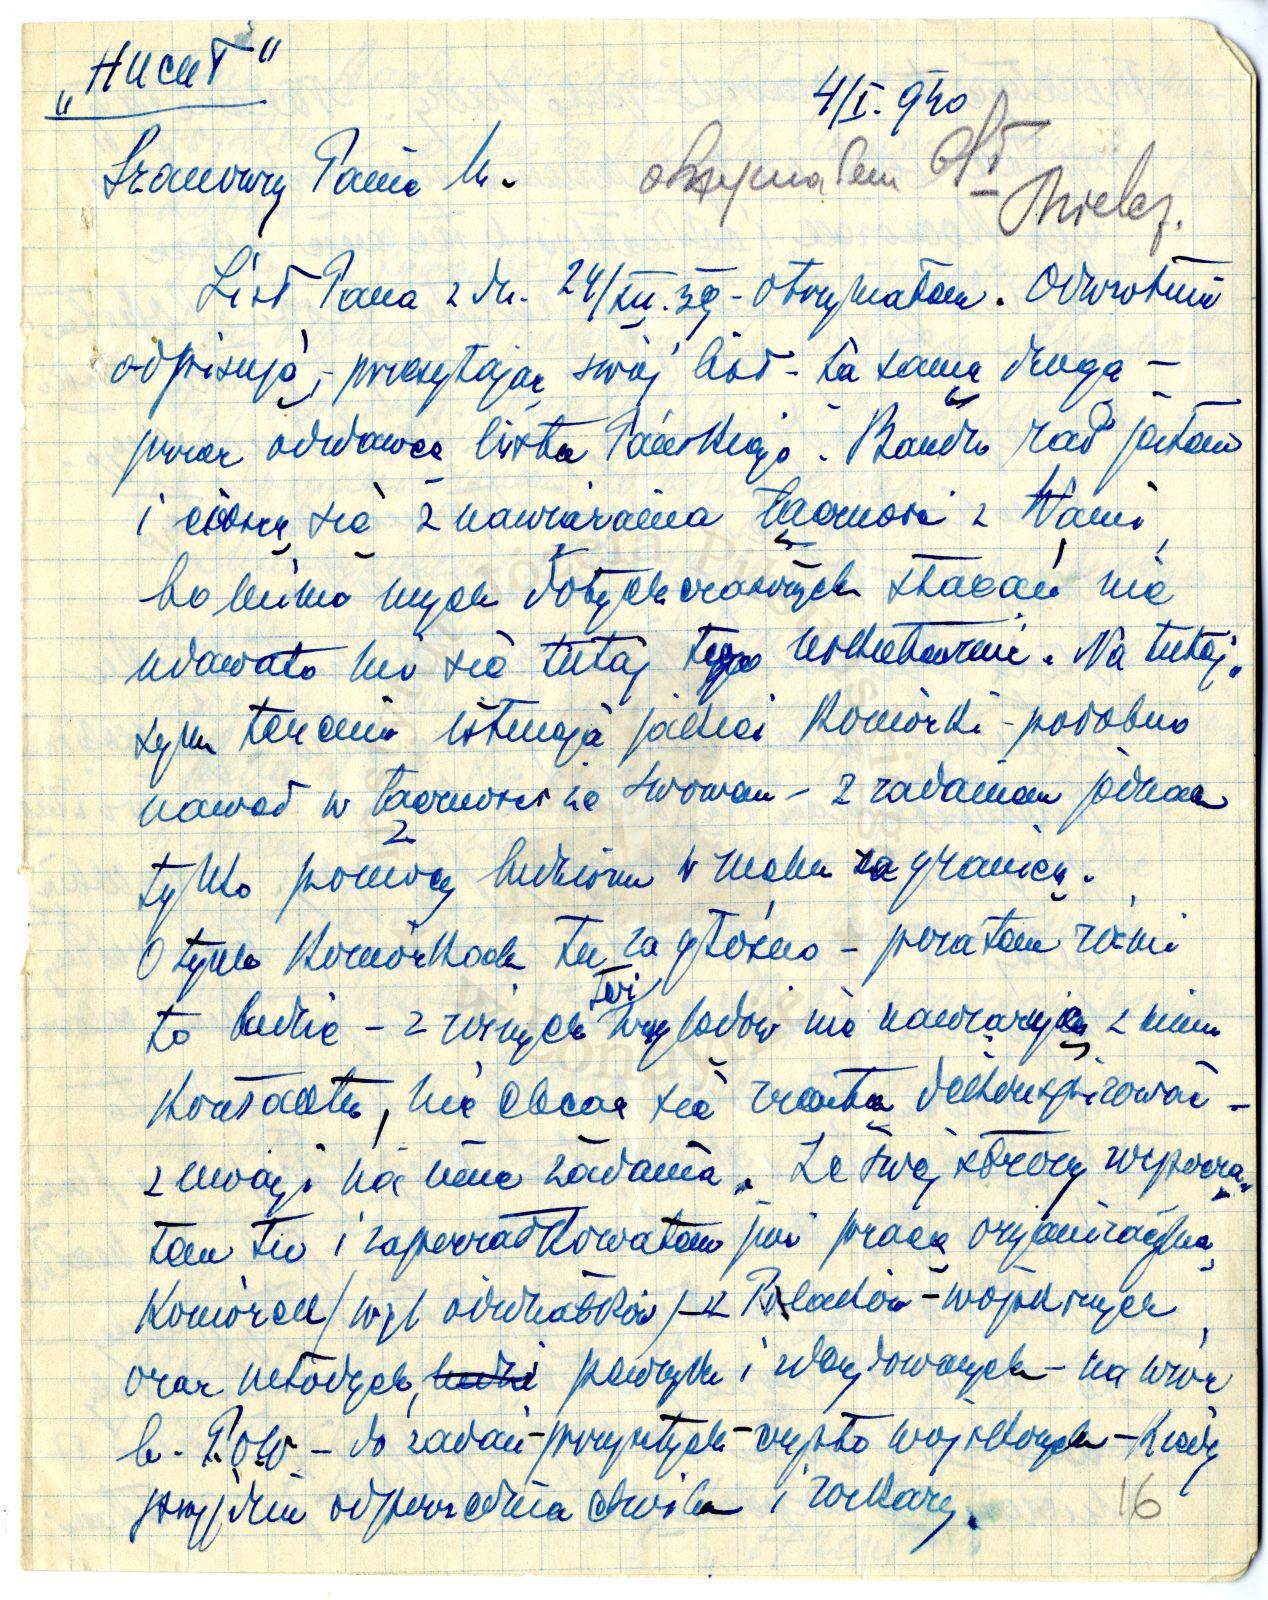 „HUCUŁ"
4/I. 940
Szanowny Panie M.
otrzymałem
List Pana z dn. 24/XII.39 - otrzymałem. Odwrotnie
odpisuję, - przesyłając swój list - tą samą drogą -
przez oddawcę listu Pańskiego. Bardzo rad jestem
i cieszę się z nawiązania łączności z Wami,
bo mimo mych dotychczasowych starań nie
udawało mi się tutaj tego uskutecznić. Na tutej„
szym terenie istnieją jakieś komórki - podobno
nawet w łączności ze Lwowem - z zadaniem jednak
tylko pomocy ludziom w ruchu za granicę.
O tych komórkach tu za głośno - poza tem różni
to ludzie - z różnych też względów nie nawiązuję z nimi
kontaktu, nie chcąc się zresztą dekonspirować -
z uwagi na inne zadania. Ze swej strony rozpoczą„
łem tu i zapoczątkowałem już pracę organizacyjną
komórek /wzgl oddziałków/ - z Polaków - wojskowych
oraz młodych, pewnych i zdecydowanych - na wzór
b. P.O.W. - do zadań - przyszłych - czysto wojskowych - kiedy
przyjdzie odpowiednia chwila i rozkazy.
16